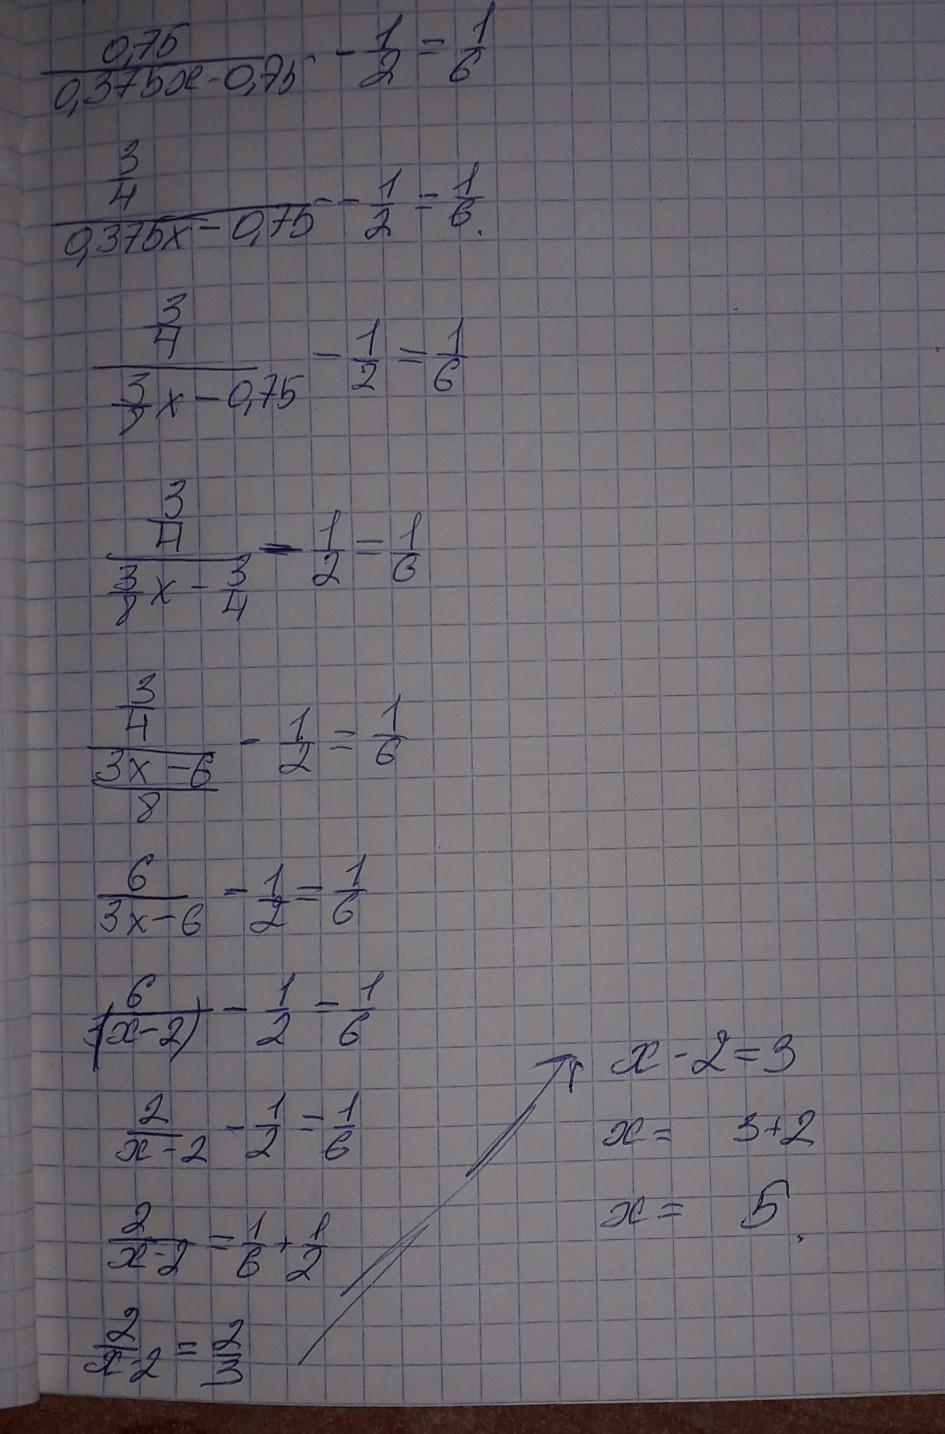 0,75/(0,375x-0,75) - 1/2 = 1/6
(3/4)/(0,375x-0,75) - 1/2 = 1/6.
(3/4)/(3/8x-0,75) - 1/2 = 1/6
(3/4)/(3/8x-3/4) - 1/2 = 1/6
(3/4)/((3x-6)/8) - 1/2 = 1/6
6/(3x-6) - 1/2 = 1/6
6/(3(x-2)) - 1/2 = 1/6
2/(x-2) - 1/2 = 1/6
2/(x-2) = 1/6 + 1/2
2/(x-2) = 2/3
x-2=3
x= 3+2
x= 5.